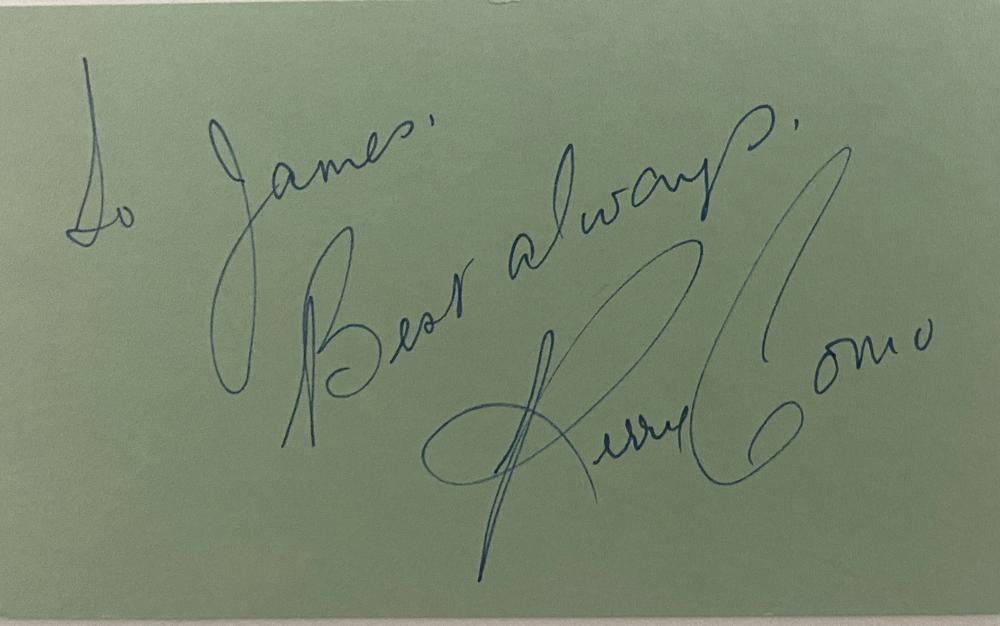 To James.
Best always.
Perry Como